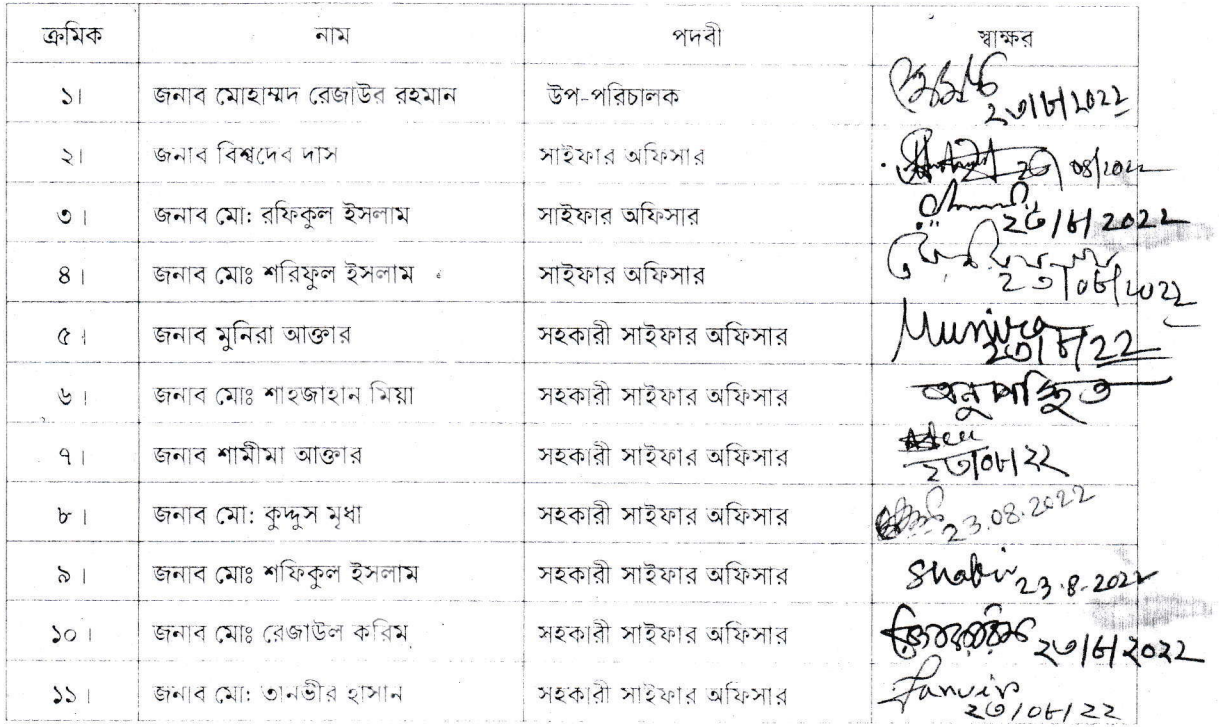 ক্রমিক নাম পদবী স্বাক্ষর
১। জনাব মোহাম্মদ রেজাউর রহমান উপ-পরিচালক ২৩/৮/২০২২
২। জনাব বিশ্বদেব দাস সাইফার অফিসার ২৩/08/২০২২
৩। জনাব মো: রফিকুল ইসলাম সাইফার অফিসার ২৩/৮/২০২২
৪। জনাব মোঃ শরিফুল ইসলাম সাইফার অফিসার ২৩/০৮/২০২২
৫। জনাব মুনিরা আক্তার সহকারী সাইফার অফিসার Munira ২৩/৮/২২
৬। জনাব মোঃ শাহজাহান মিয়া সহকারী সাইফার অফিসার অনুপস্থিত
৭। জনাব শামীমা আক্তার সহকারী সাইফার অফিসার ২৩/০৮/২২
৮। জনাব মো: কুদ্দুস মৃধা সহকারী সাইফার অফিসার 23.08.2022
৯। জনাব মোঃ শফিকুল ইসলাম সহকারী সাইফার অফিসার 23.8.2022
১০। জনাব মোঃ রেজাউল করিম সহকারী সাইফার অফিসার ২৩/৮/২০২২
১১। জনাব মো: তানভীর হাসান সহকারী সাইফার অফিসার Tanvir ২৩/০৮/২২